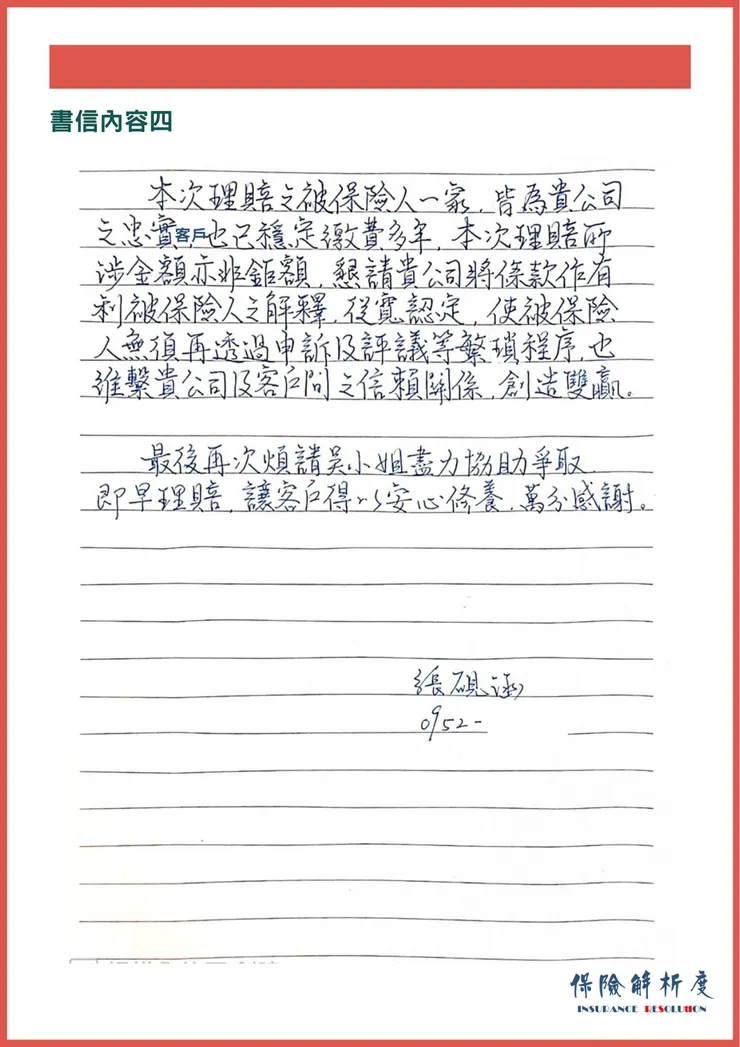 書信內容四
本次理賠之被保險人一家，皆為貴公司
之忠實客戶，也已穩定繳費多年，本次理賠所
涉金額亦非鉅額，懇請貴公司將條款作有
利被保險人之解釋，從寬認定，使被保險
人無須再透過申訴及評議等繁瑣程序，也
維繫貴公司及客戶間之信賴關係，創造雙贏。
最後再次煩請吳小姐盡力協助爭取
即早理賠，讓客戶得以安心修養，萬分感謝。
張硯涵
0952-
保險解析度
INSURANCE RESOLUTION